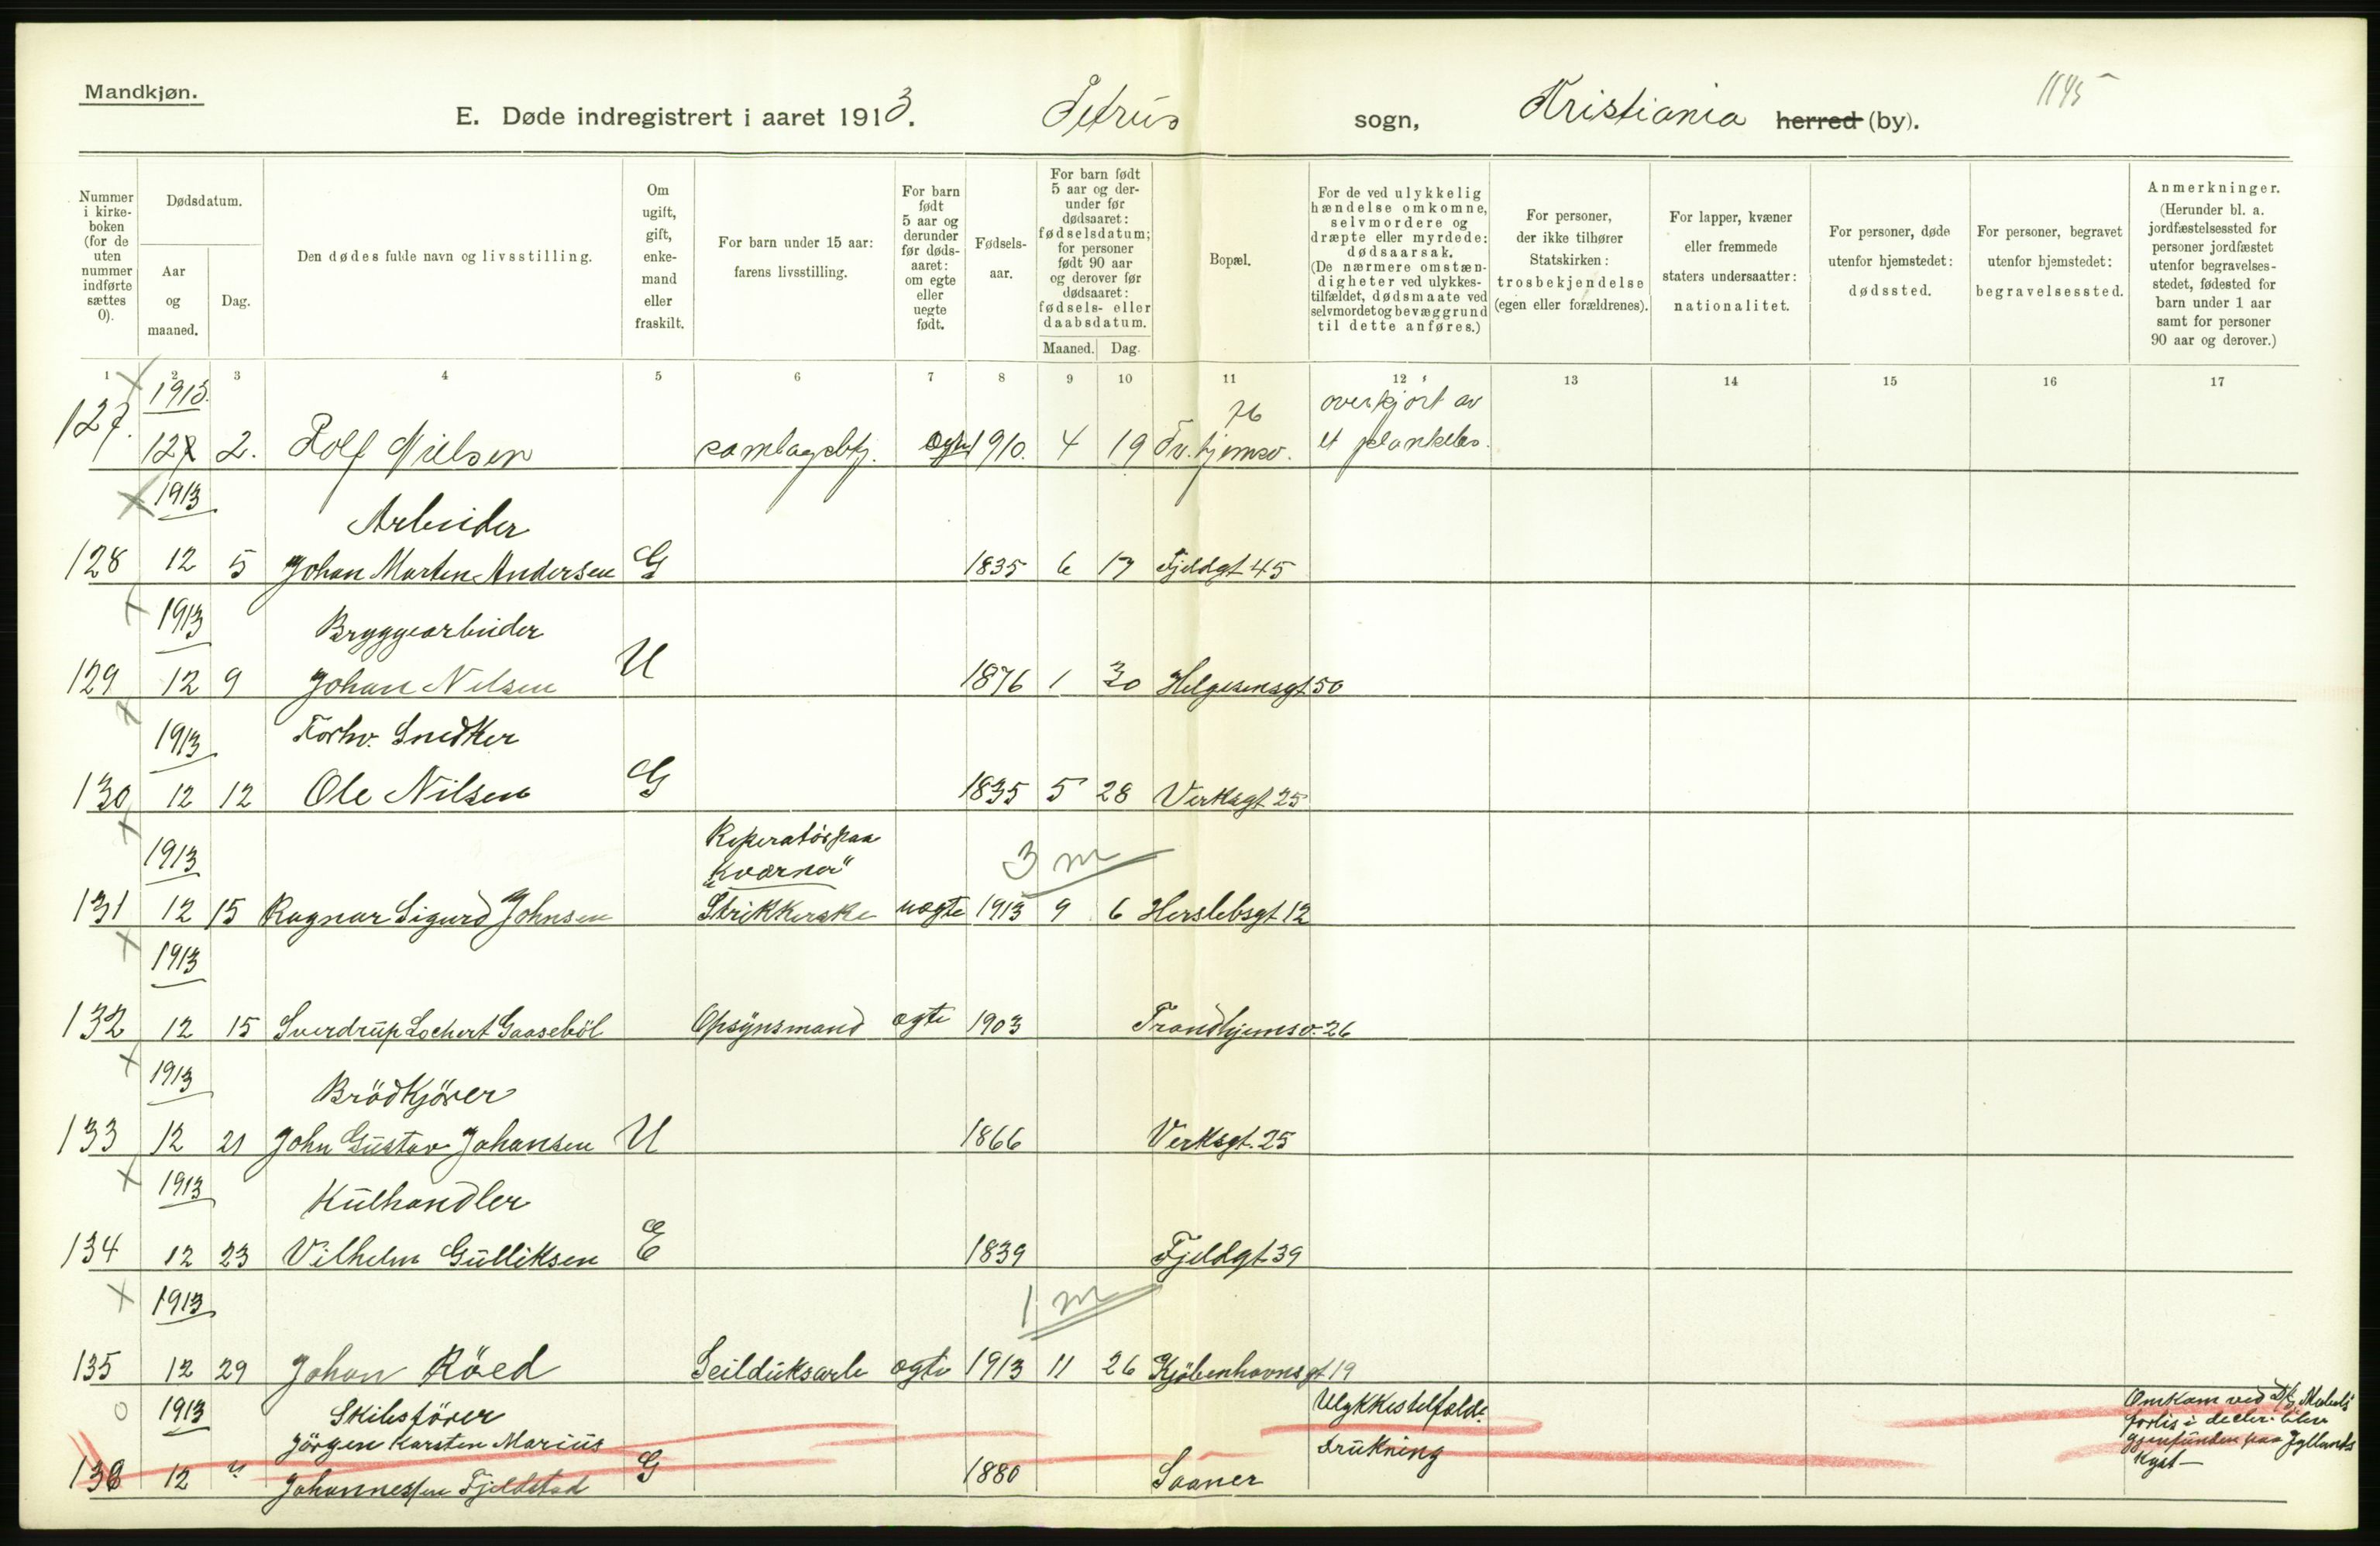 Mandkjøn.
E. Døde indregistrert i aaret 1913. Petrus sogn, Kristiania herred (by). 1145
Nummer i kirke-boken (for de uten nummer indførte sættes 0).
Dødsdatum.
Aar og maaned.
Dag.
Den dødes fulde navn og livsstilling.
Om ugift, gift, enke-mand eller fraskilt.
For barn under 15 aar: farens livsstilling.
For barn født 5 aar og derunder før døds-aaret: om egte eller uegte født.
Fødsels-aar.
For barn født 5 aar og der-under før dødsaaret: fødselsdatum; for personer født 90 aar og derover før dødsaaret: fødsels- eller daabsdatum.
Maaned. Dag.
Bopæl.
For de ved ulykkelig hændelse omkomne, selvmordere og dræpte eller myrdede: dødsaarsak. (De nærmere omstæn-digheter ved ulykkes-tilfældet, dødsmaate ved selvmordet og bevæggrund til dette anføres.)
For personer, der ikke tilhører Statskirken: trosbekjendelse (egen eller forældrenes).
For lapper, kvæner eller fremmede staters undersaatter: nationalitet.
For personer, døde utenfor hjemstedet: dødssted.
For personer, begravet utenfor hjemstedet: begravelsessted.
Anmerkninger. (Herunder bl. a. jordfæstelsessted for personer jordfæstet utenfor begravelses-stedet, fødested for barn under 1 aar samt for personer 90 aar og derover.)
1 2 3 4 5 6 7 8 9 10 11 12 13 14 15 16 17
1913. 76 overkjört av
127. 12 2. Rolf Nielsen samlagsbtj. egte 1910. 4 19 Tv. hjemsv. et plankelas.
1913 Arbeider
128 12 5 Johan Marten Andersen G 1835 6 17 Fjeldgt 45
1913 Bryggearbeider
129 12 9 Johan Nilsen U 1876 1 30 Helgesensgt 50
1913 Forhv. Snedker
130 12 12 Ole Nilsen G 1835 5 28 Verksgt 25
1913 Reperatör paa
"Kværner" 3 m
131 12 15 Ragnar Sigurd Johnsen Strikkerske uegte 1913 9 6 Herslebsgt 12
1913
132 12 15 Sverdrup Lochert Gaaseböl Opsynsmand egte 1903 Trondhjemsv. 26
1913 Brödkjörer
133 12 21 John Gustav Johansen U 1866 Verksgt. 25
1913 Kulhandler
134 12 23 Vilhelm Gulliksen E 1839 Fjeldgt 39
1913 1 m
135 12 29 Johan Röed Seilduksarb egte 1913 11 26 Kjöbenhavnsgt 19
1913 Skibsförer Ulykkestilfælde Omkom ved
Jörgen Karsten Marius drukning forlis i decbr. blev
136 12 " Johannessen Fjeldstad G 1880 Saaner gjenfunden paa Jyllands
Kyst —